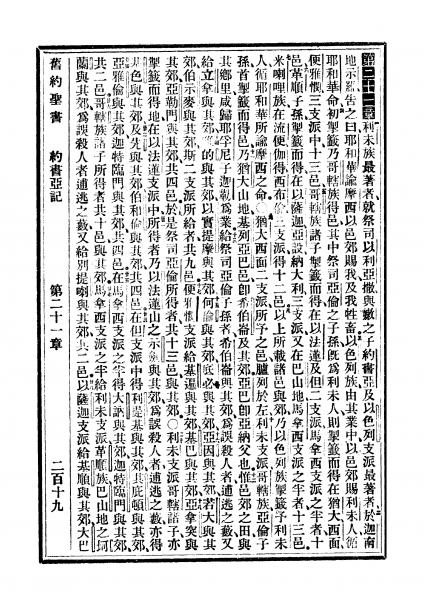 第二十一章 利未族最著者就祭司以利亞撒與嫩之子約書亞及以色列支派最著者於迦南
地示羅告之曰耶和華諭摩西以邑郊賜我及我牲畜以色列族由其業中以邑郊賜利未人循
耶和華命初掣籤哥轄族得邑其中祭司亞倫之子孫旣爲利未人則掣籤而得在猶大西面
便雅憫三支派中十三邑哥轄族諸子掣籤而得在以法蓮及但二支派馬拿西支派之半者十
邑革順子孫掣籤而得在以薩迦亞設納大利三支派又在巴山地馬拿西支派之半者十三邑
米喇哩族在流便伽得西布倫三支派得十二邑以上所載諸邑與郊乃以色列族掣籤予利未
人循耶和華所諭摩西之命猶大西面二支派所予之邑臚列於左利未支派哥轄族亞倫子
孫首掣籤而得邑乃猶大山地基列亞巴邑卽希伯崙及其郊亞巴卽亞納父也惟邑郊之田與
其鄉里咸歸耶孚尼子迦勒爲業給祭司亞倫子孫者希伯崙與其郊爲誤殺人者逋逃之藪又
給立拿與其郊的與其郊以實提摩與其郊何崙與其郊底必與其郊亞因與其郊若大與其
郊伯示麥與其郊斯二支派所給者共九邑便雅憫支派給基遍與其郊基巴與其郊亞拿突與
其郊亞勒門與其郊共四邑於是祭司亞倫所得者共十三邑與其郊○利未支派哥轄諸子亦
掣籤而得地在以法蓮支派中所得者乃以法蓮山之示劍與其郊爲誤殺人者逋逃之藪亦得
基色與其郊及先與其郊伯和倫與其郊共四邑在但支派中得利提基與其郊其庇頓與其郊
亞雅倫與其郊迦特臨門與其郊共四邑在馬拿西支派之半得大訥與其郊迦特臨門與其郊
共二邑哥轄族諸子所得者共十邑與其郊馬拿西支派之半給利未支派革順族巴山地之坷
蘭與其郊爲誤殺人者逋逃之藪又給別提喇與其郊共二邑以薩迦支派給基順與其郊大巴
舊約聖書 約書亞記 第二十一章 二百十九